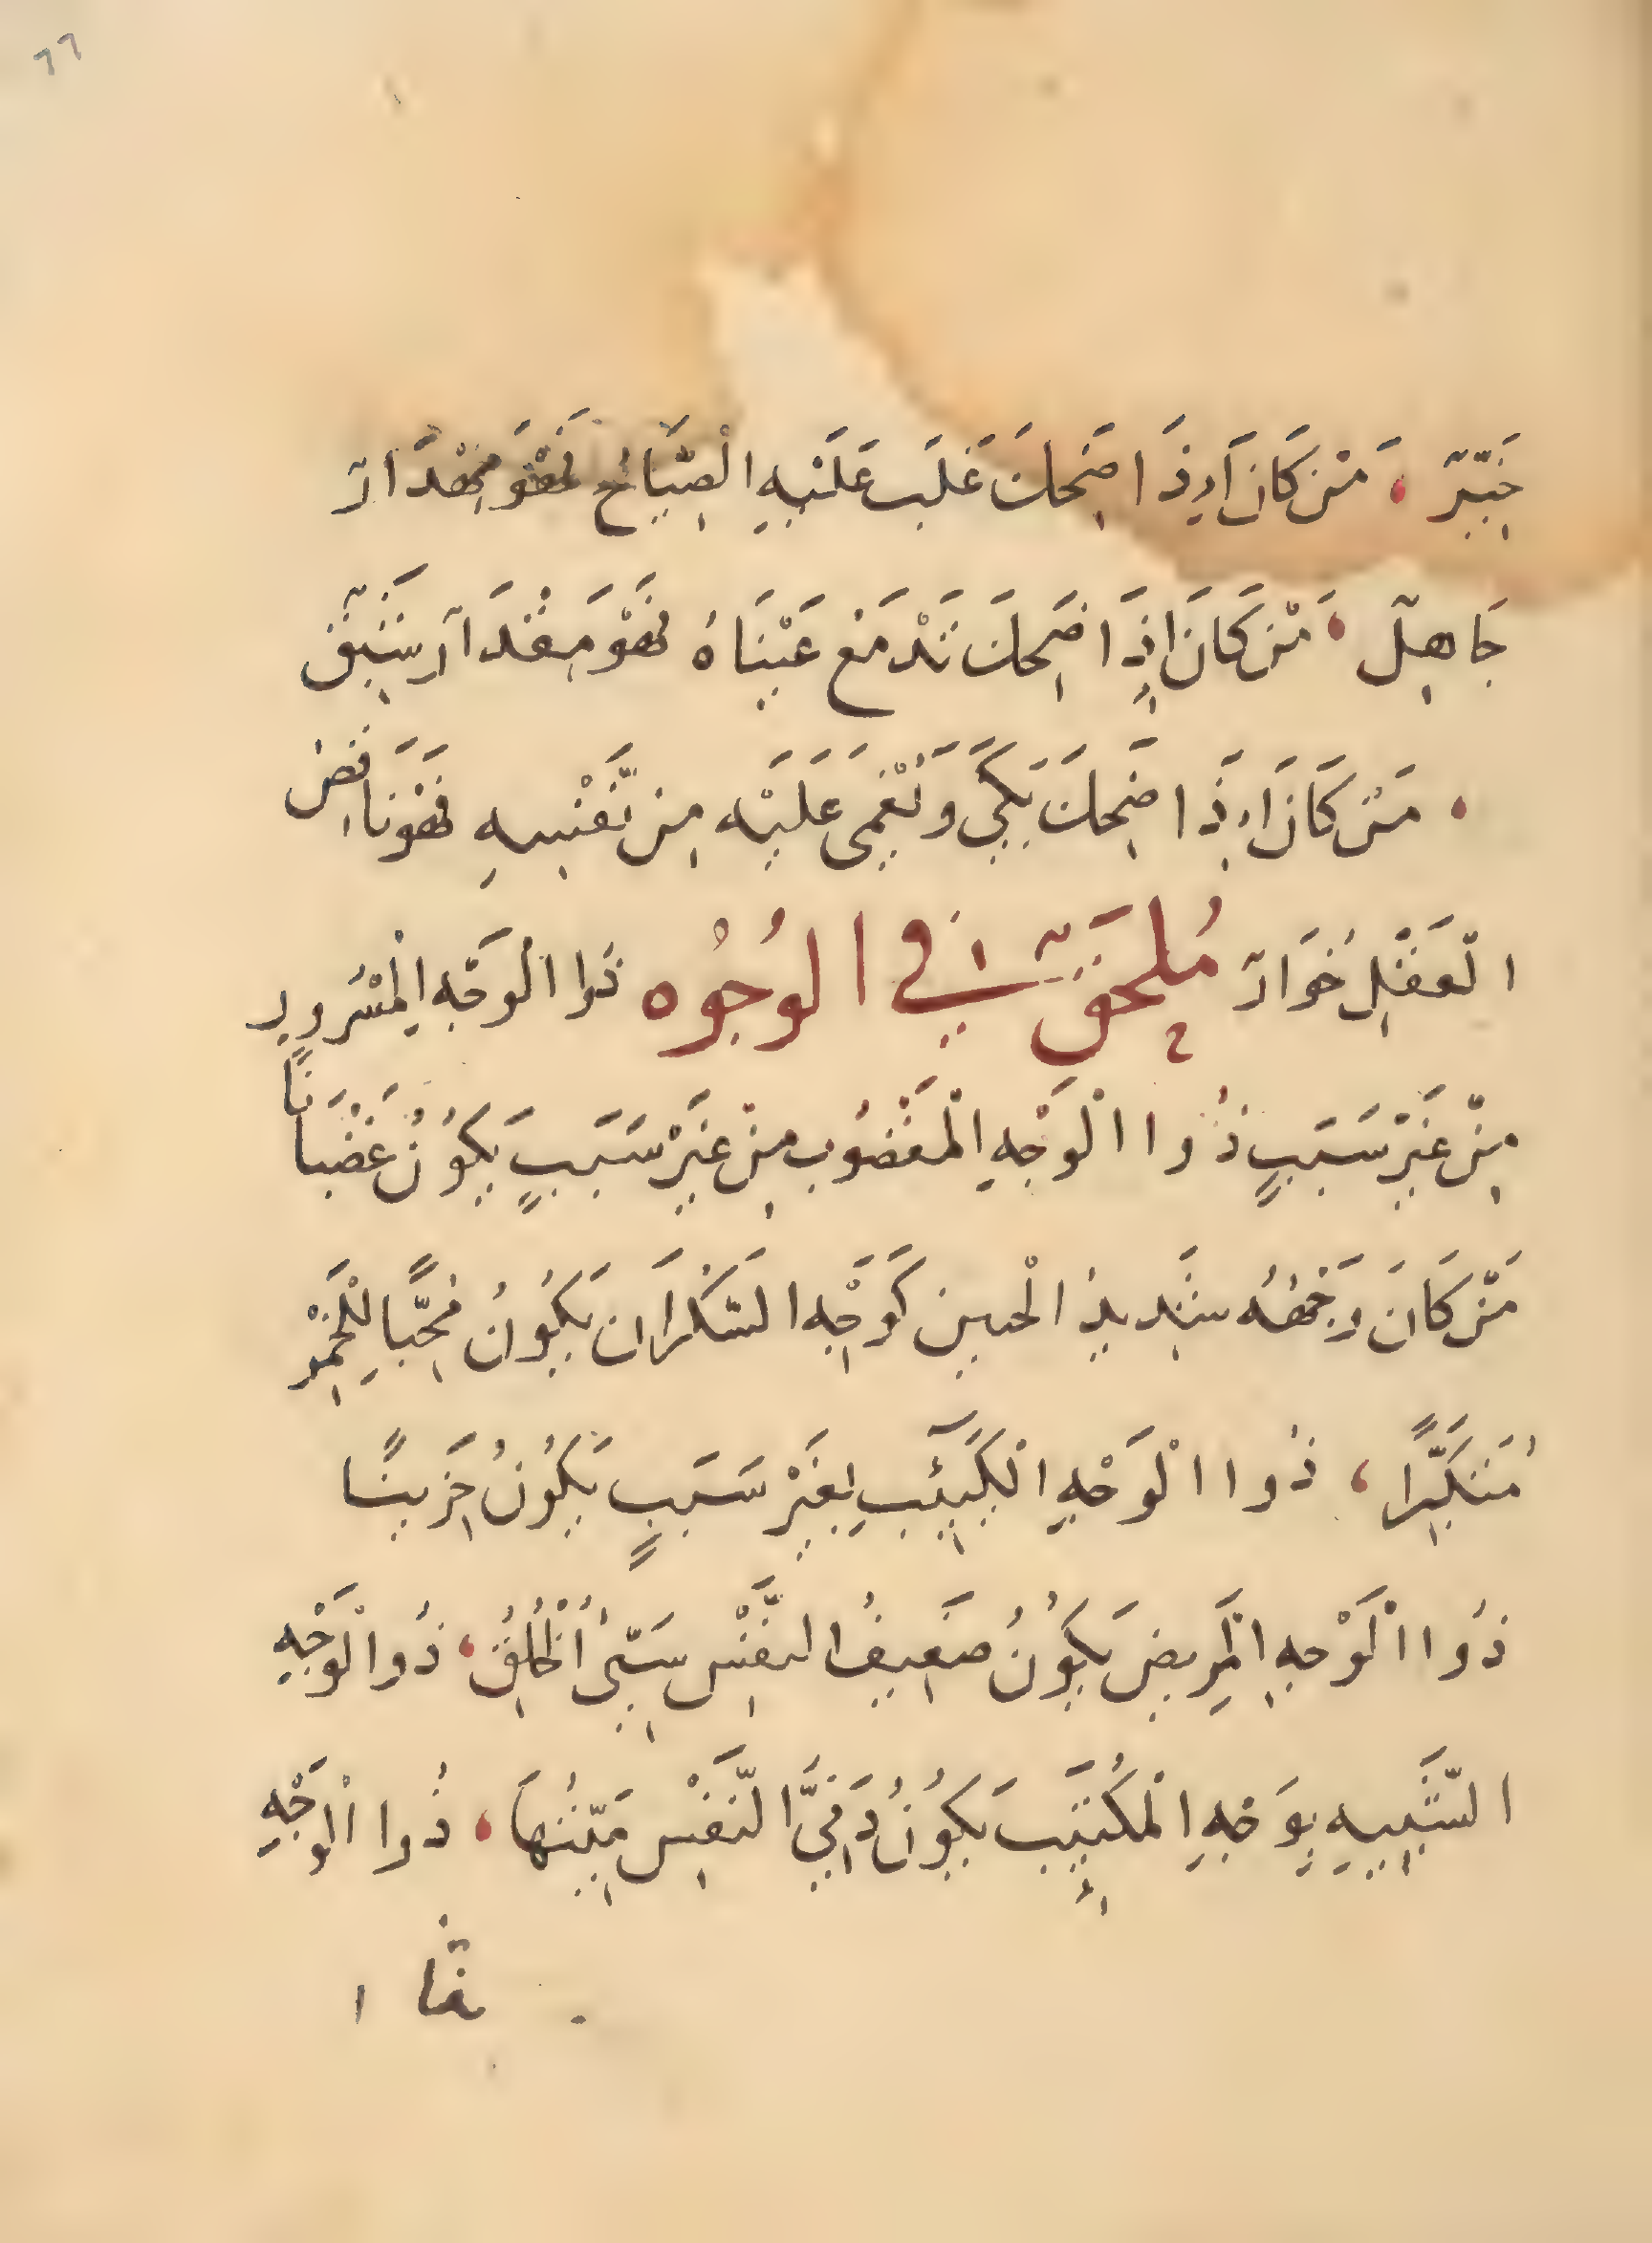 ٦٦
خَيِّرٌ ، مَنْ كَانَ اِذَا ضَحِكَ غَلَبَ عَلَيْهِ الْصِّيَاح فَهْوَ مِهْدَارٌ
جَاهِلٌ ، مَنْ كَانَ اِذَا ضَحِكَ تَدْمَع عَيْنَاهُ فَهْوَ مِقْدَارٌ شَبِقٌ
، مَنْ كَانَ اِذَا ضَحِكَ يَبْكِي وَيُغْمِى عَلَيْه مِن نَّفْسِهِ فَهْوَ نَاقِضُ
الْعَقْلِ خُوَارٌ مُلحَقٌ فِي الوُجُوه ذُوا الْوَجْهِ الْمَسْرُورِ
مِنْ غَيْرِ سَبَبٍ ذُوا الْوَجْهِ الْمَغْضُوبِ مِنْ غَيْرِ سَبَبٍ يَكُونُ غَضْبَانًا
مَنْ كَانَ وَجْهُهُ شَدِيدُ الْحين كَوَجْهِ السَّكْرَان يَكُونُ مُحِبًّا لِلْخَمْرِ
مُتَنَكِّرًا ، ذُوا الْوَجْهِ الْكَئِيبِ بِغَيْرِ سَبَبٍ يَكُونُ حَزِينًا
ذُوا الْوَجْهِ الْمَرِيضِ يَكُونُ ضَعِيفُ النَّفْسِ سَيِّئُ الْخُلُقُ ، ذُوا الْوَجْهِ
الشَّبِيهِ بِوَجْهِ الْمُكْتَئِبَ يَكُونُ دَنِيَّ النَّفْسِ مَيِّتُهَا ، ذُوا الْوَجْهِ